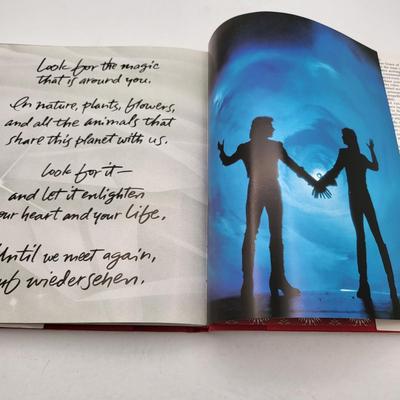 Look for the magic
that is around you.
In nature, plants, flowers,
and all the animals that
share this planet with us.
Look for it—
and let it enlighten
your heart and your life.
Until we meet again,
auf wiedersehen.